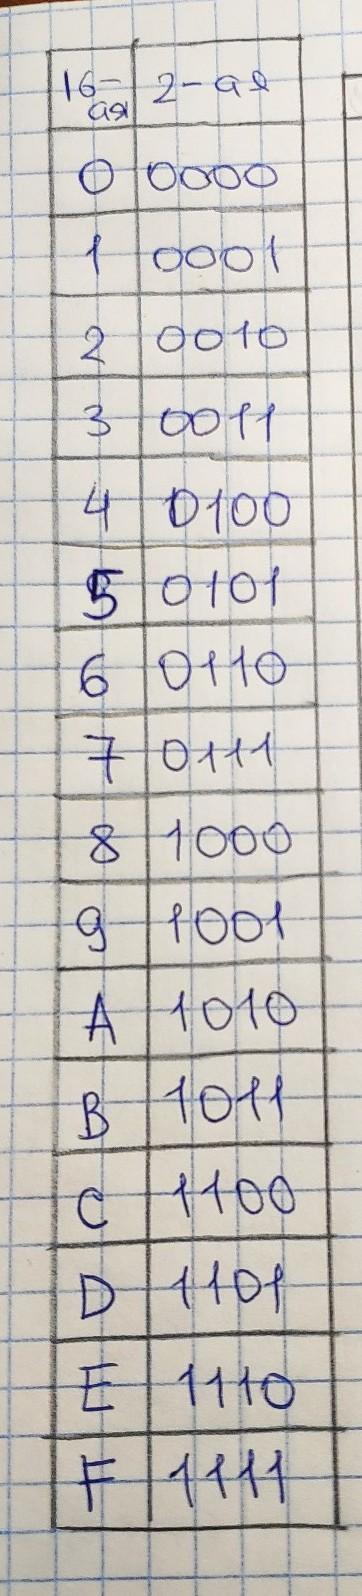 16-ая 2-ая
0 0000
1 0001
2 0010
3 0011
4 0100
5 0101
6 0110
7 0111
8 1000
9 1001
A 1010
B 1011
C 1100
D 1101
E 1110
F 1111